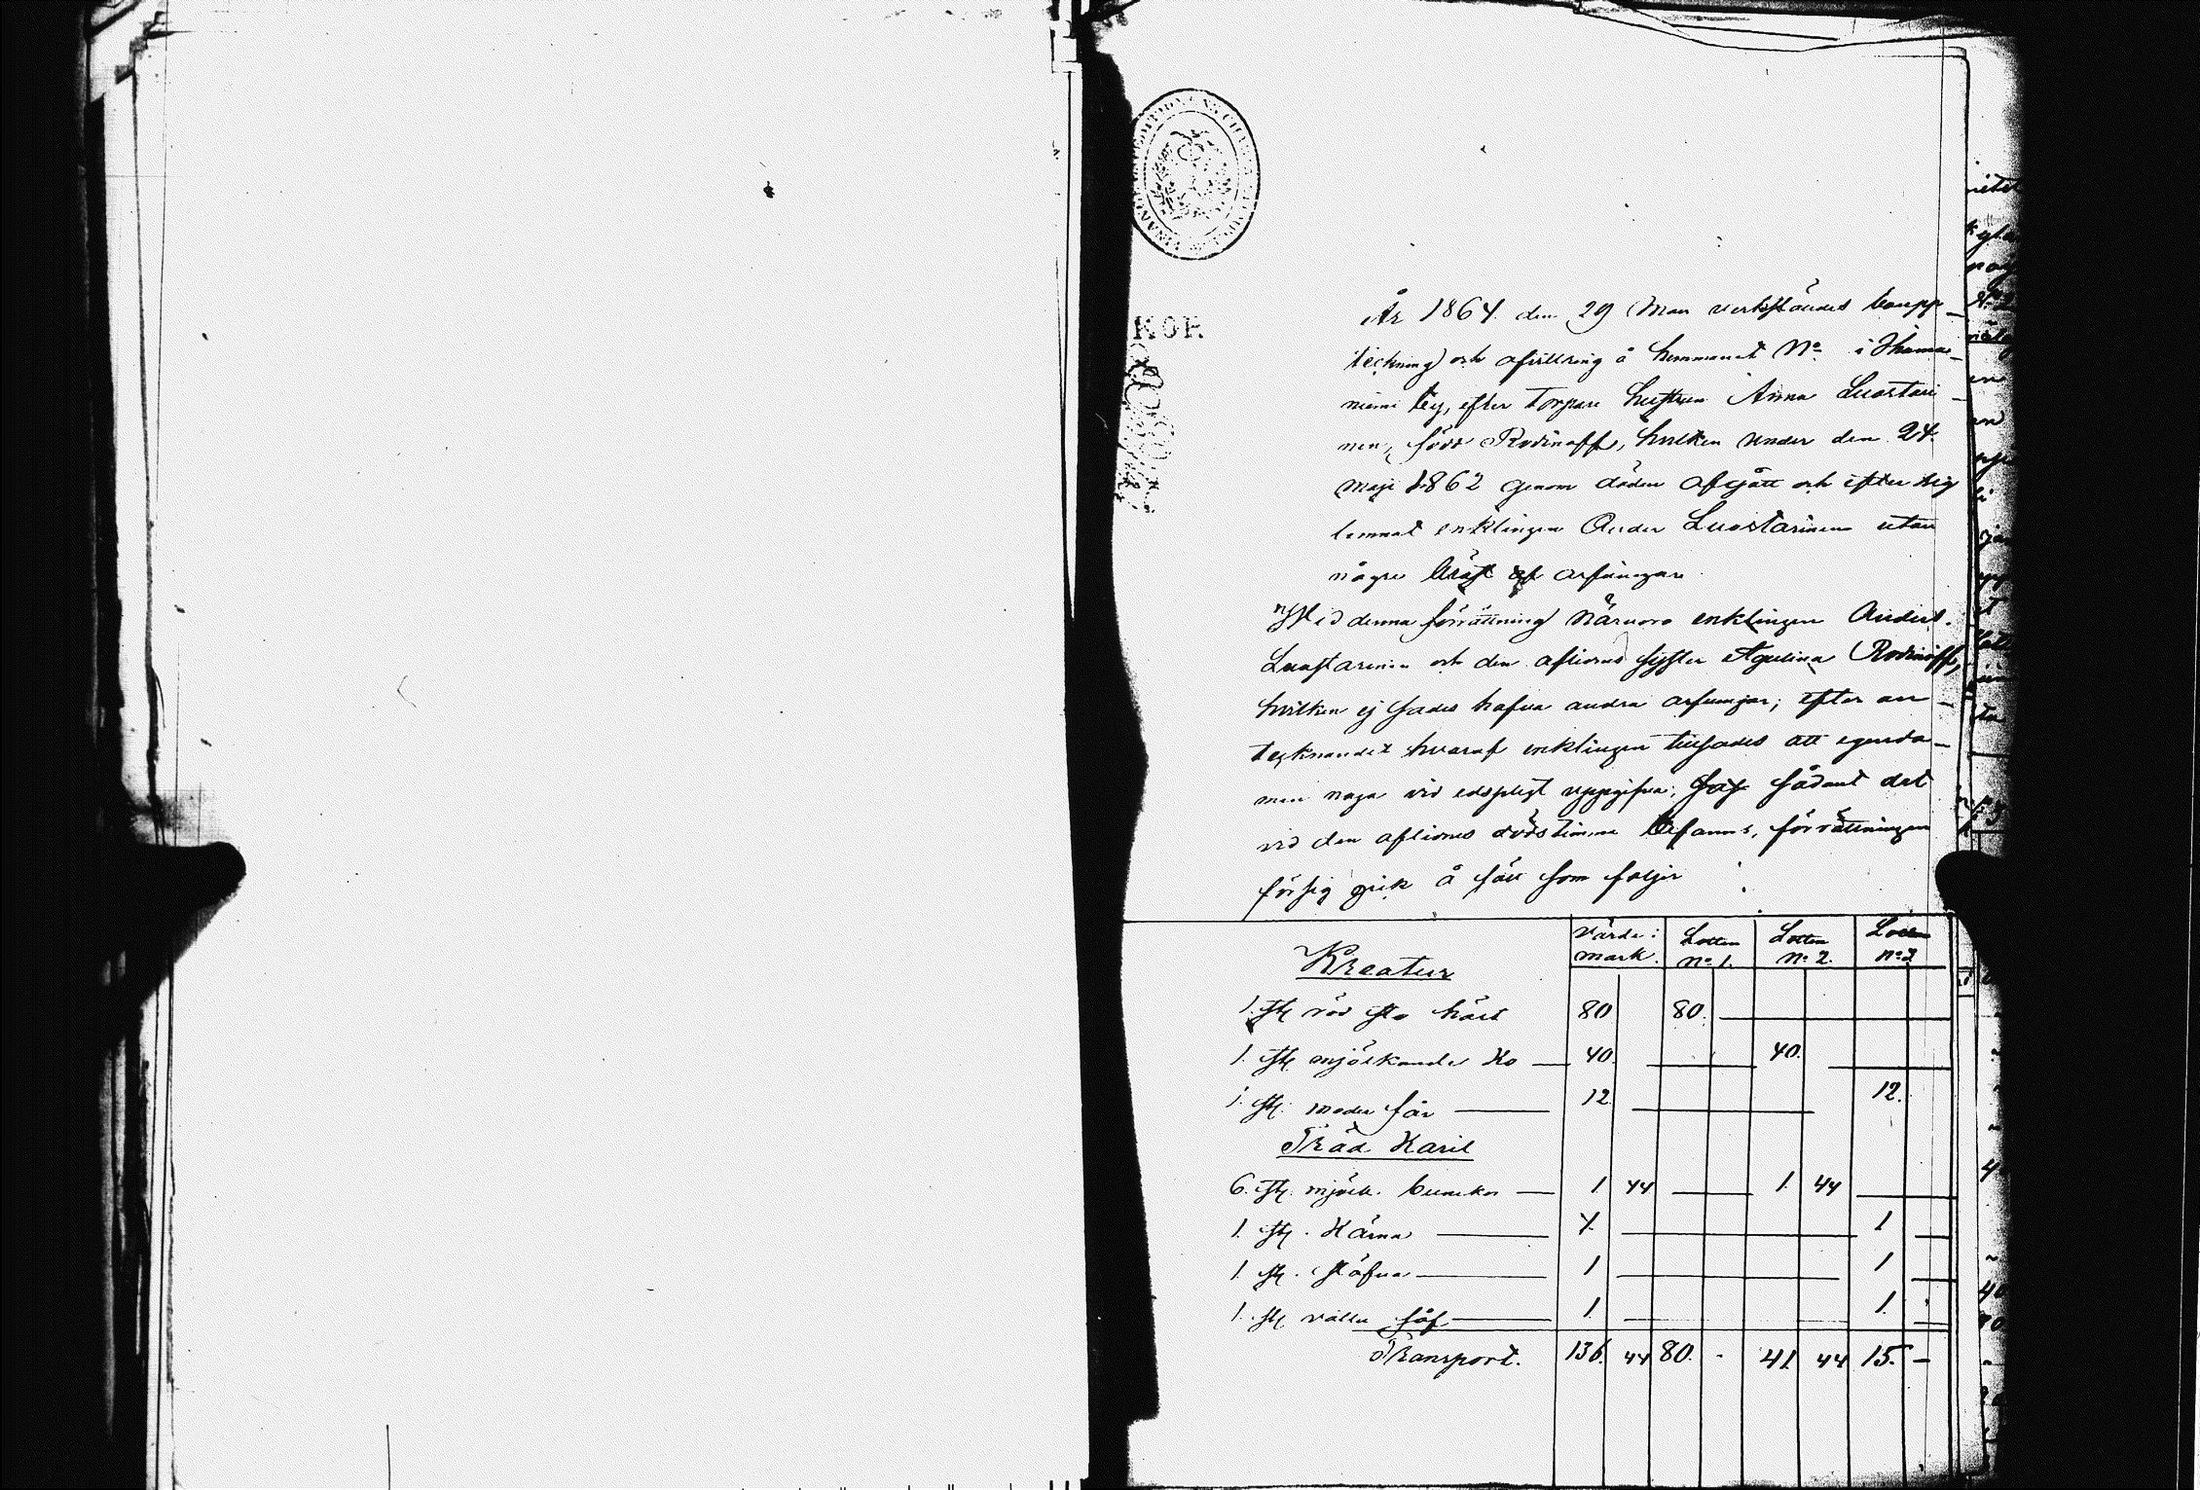 KOR
År 1864 den 29 Mars verkstäldes boupp-
teckning och afvittring å hemmanet No i Thama-
niemi by, efter Torpare hustrun Anna Luostari-
nen, född Rodinoff, hvilken under den 24
Maji 1862 genom döden afgått och efter sig
lemnat enklingen Ander Luostarinen utan
några bröst arfvingar.
Vid denna förrättning närvoro enklingen Anders
Luostarinen och den aflidnes syster Agelina Rodinoff,
hvilken ej sades hafva andra arfvingar; efter an-
tecknandet hvaraf enklingen tillsades att egendo-
men noga vid edspligt uppgifva, sådant det
vid den aflidnes dödstimme befanns, förrättningen
försig gick å sätt som följer
Kreatur
Värde: mark. Lotten No 1. Lotten No 2. Lotten No 3
1. st röd sto häst 80 80.
1. st mjölkande Ko 40. 40.
1. st. moder får 12 12.
Träd Käril
6. st. mjölk bunckor 1 44 1. 44
1. st. Kärna 1. 1
1. st. stäfva 1 1
1. st vatten så 1. 1.
Transport. 136. 44 80. - 41 44 15. -